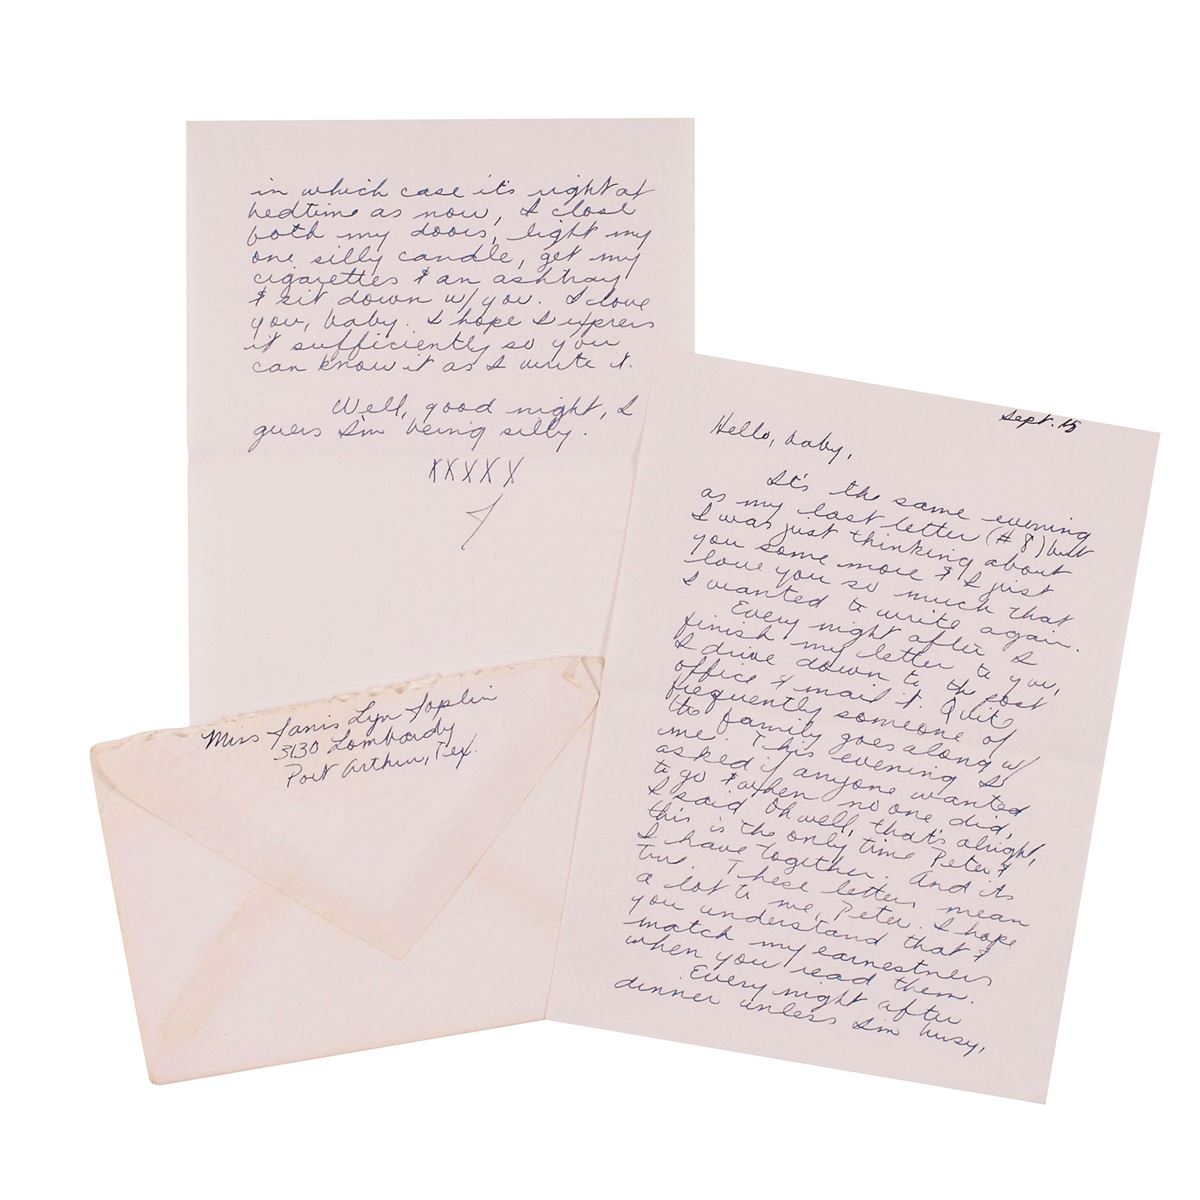 Sept. 15
Hello, baby,
It's the same evening
as my last letter (#8) but
I was just thinking about
you some more & I just
love you so much that
I wanted to write again.
Every night after I
finish my letter to you,
I drive down to the post
office & mail it. Quite
frequently someone of
the family goes along w/
me. This evening I
asked if anyone wanted
to go & when no one did,
I said Oh well, that's alright,
this is the only time Peter &
I have together. And its
true. These letters mean
a lot to me, Peter. I hope
you understand that &
match my earnestness
when you read them.
Every night after
dinner unless I'm busy,
in which case it's right at
bedtime as now, I close
both my doors, light my
one silly candle, get my
cigarettes & an ashtray
& sit down w/ you. I love
you, baby. I hope I express
it sufficiently so you
can know it as I write it.
Well, good night, I
guess I'm being silly.
XXXXX
J
Miss Janis Lyn Joplin
3130 Lombardy
Port Arthur, Tex.